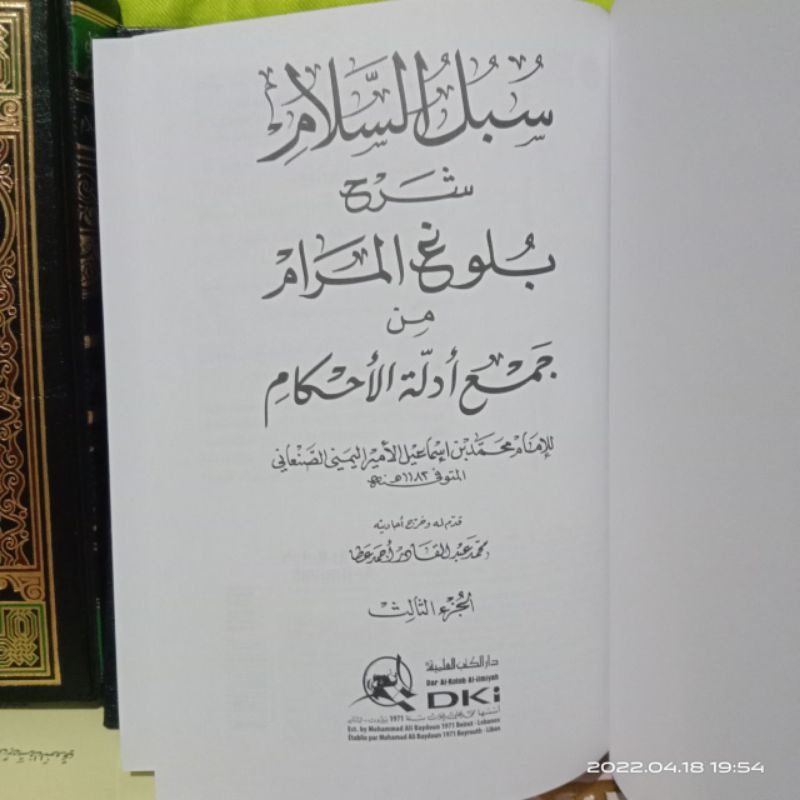 سُبُلُ السَّلَامِ
شَرْح
بُلُوغ المَرَام
مِن
جَمْع أدلّة الأَحْكَامِ
للإمام محمّد بن إسماعيل الأمير اليمني الصّنعاني
المتوفى ١١٨٢ هـ
قدّم له وخرّج أحاديثه
محمّد عبد القادر أحمد عطا
الجُزء الثالث
دار الكتب العلمية
Dar Al-Kotob Al-ilmiyah
DKi
أسسها محمد علي بيضون سنة 1971 بيروت - لبنان
Est. by Mohammad Ali Baydoun 1971 Beirut - Lebanon
Établie par Mohamad Ali Baydoun 1971 Beyrouth - Liban
2022.04.18 19:54